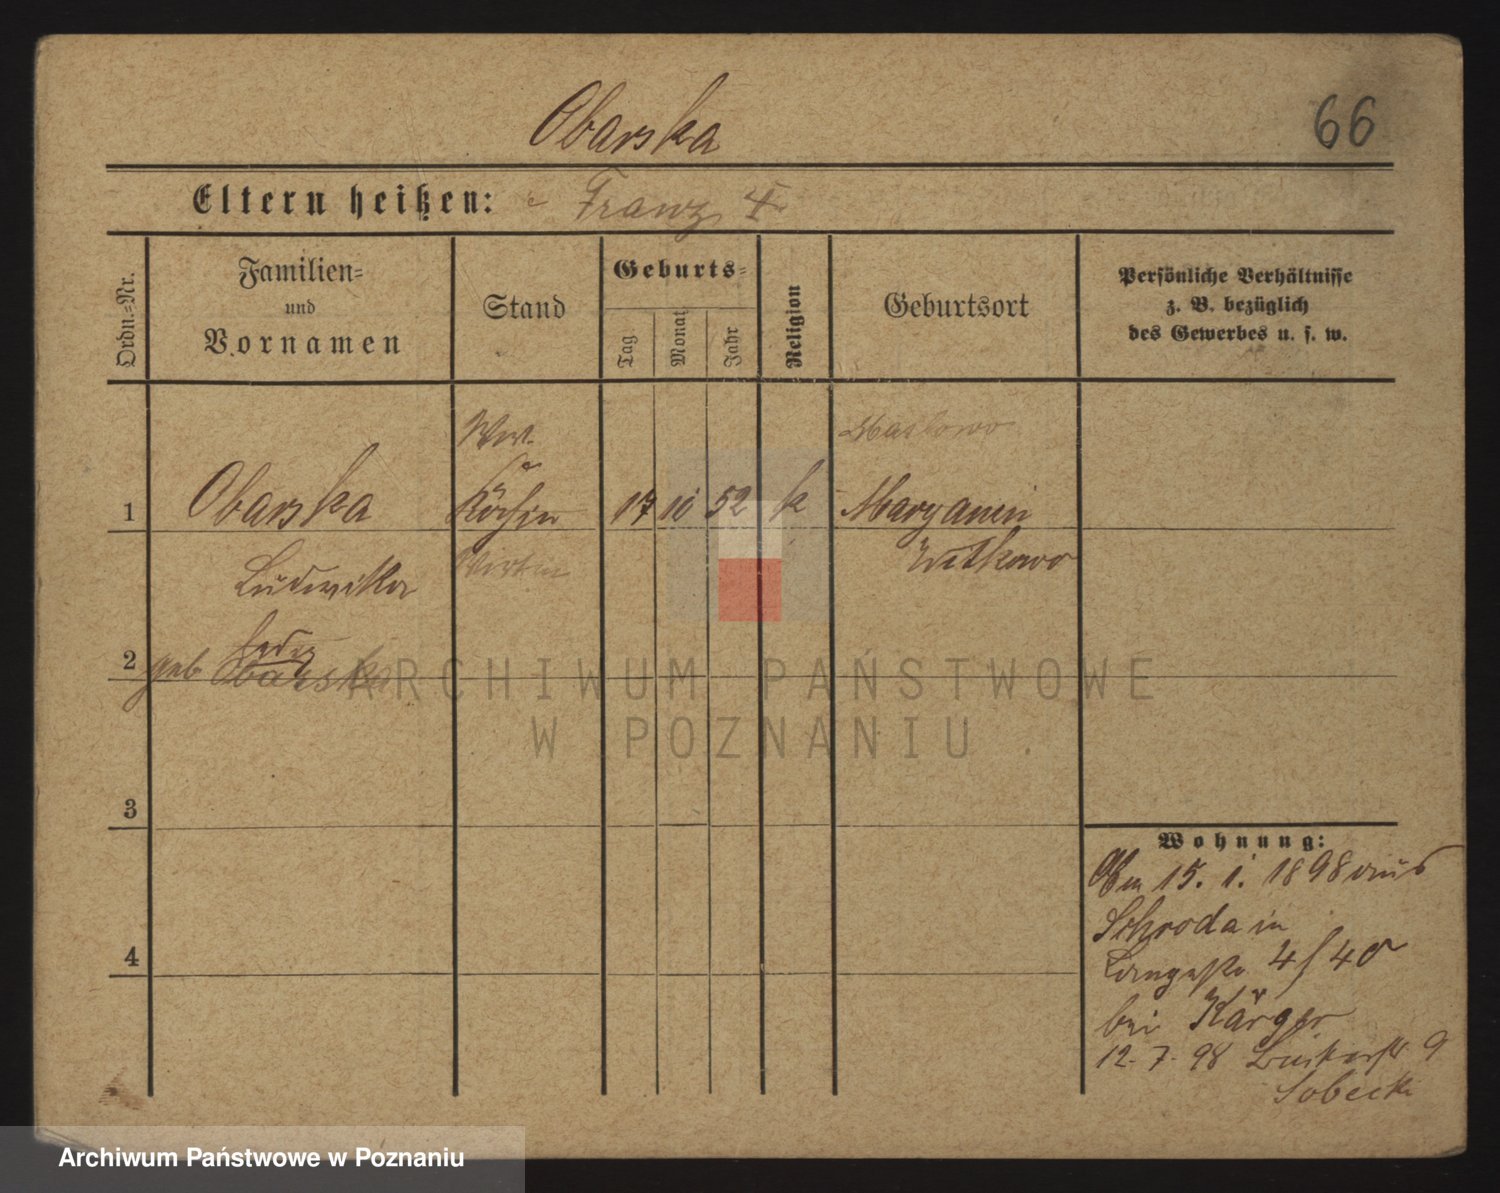 Obarska
66
Eltern heißen: Franz
Ordn.=Nr.
Familien=
und
Vornamen
Stand
Geburts=
Tag
Monat
Jahr
Religion
Geburtsort
Persönliche Verhältnisse
z. B. bezüglich
des Gewerbes u. s. w.
1 Obarska Köchin 17 10 52 k Maryanin
Ludwika Wirtin Witkowo
2 geb ledig
Obarska
3
4
Wohnung:
15. 1. 1898 aus
Schroda in
Langestr 4/40
bei Kärger
12. 7. 98 9
Sobecki
ARCHIWUM PAŃSTWOWE
W POZNANIU
Archiwum Państwowe w Poznaniu